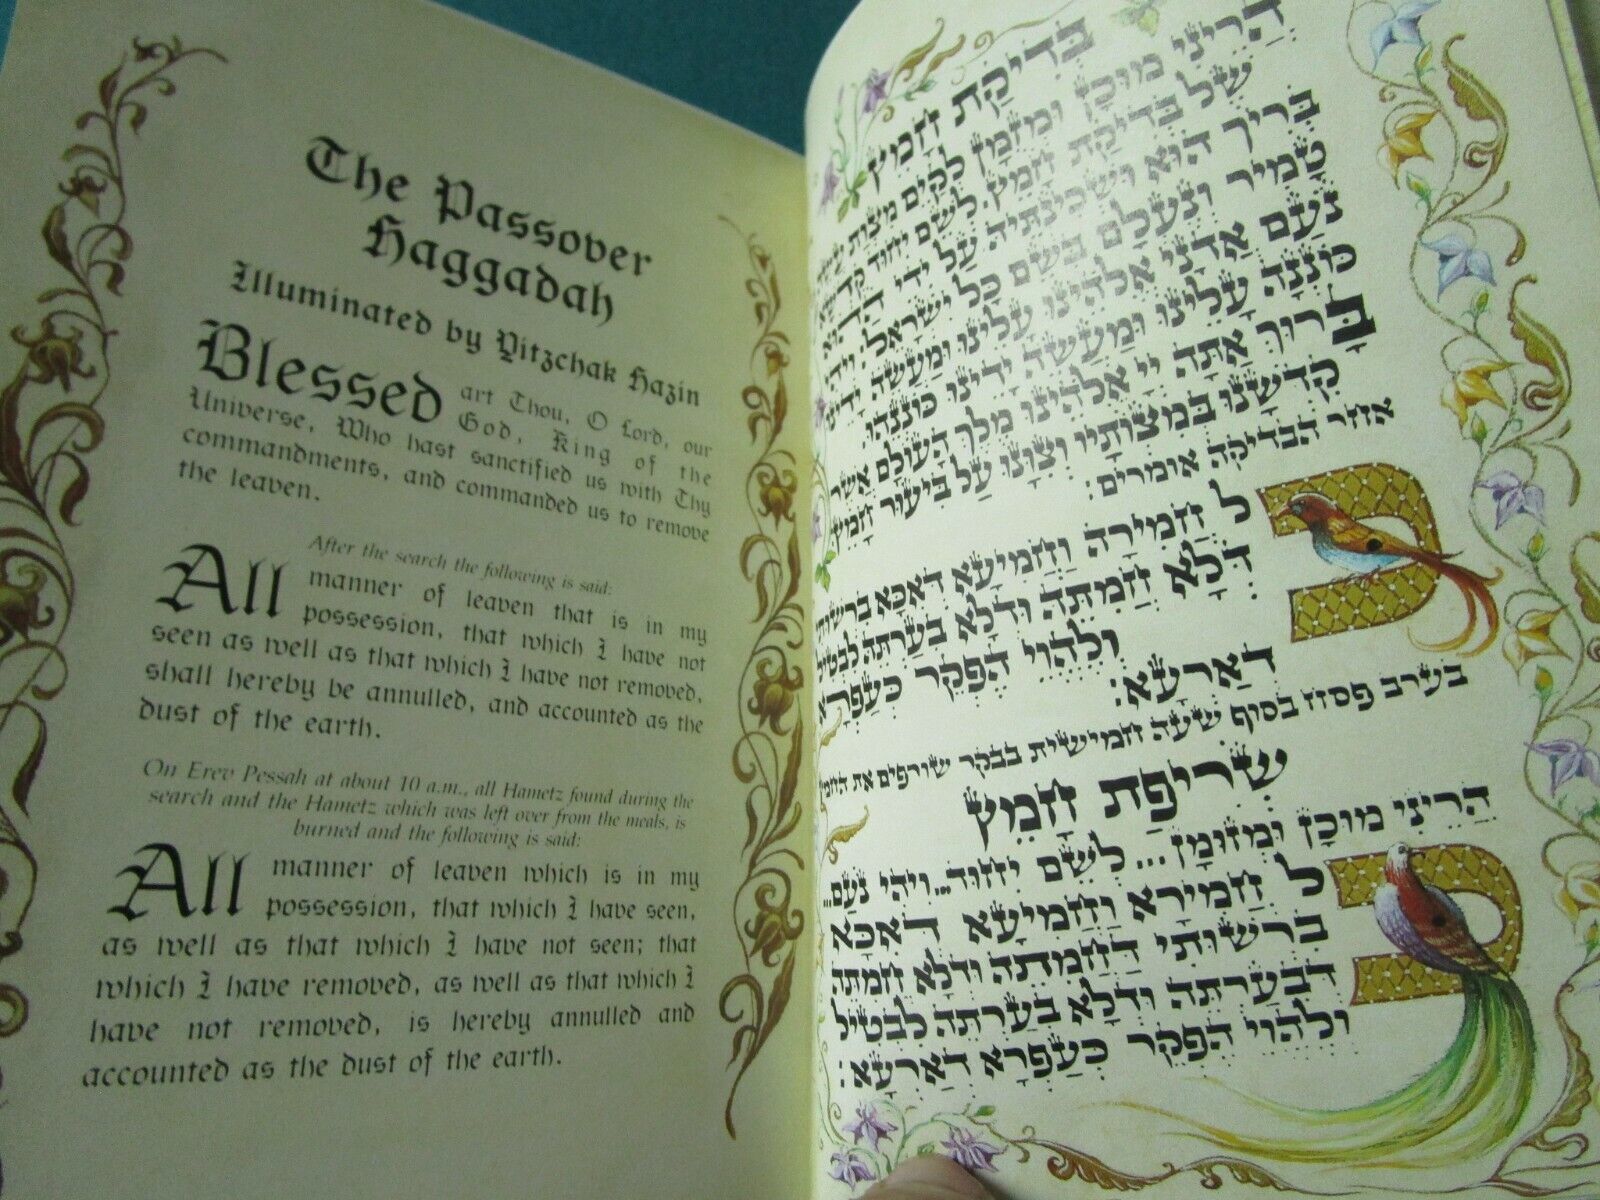 The Passover
Haggadah
Illuminated by Yitzchak Hazin
Blessed art Thou, O Lord, our
God, King of the
Universe, Who hast sanctified us with Thy
commandments, and commanded us to remove
the leaven.
After the search the following is said:
All manner of leaven that is in my
possession, that which I have not
seen as well as that which I have not removed,
shall hereby be annulled, and accounted as the
dust of the earth.
On Erev Pessah at about 10 a.m., all Hametz found during the
search and the Hametz which was left over from the meals, is
burned and the following is said:
All manner of leaven which is in my
possession, that which I have seen,
as well as that which I have not seen; that
which I have removed, as well as that which I
have not removed, is hereby annulled and
accounted as the dust of the earth.
בְּדִיקַת חָמֵץ
הֲרֵינִי מוּכָן וּמְזֻמָּן לְקַיֵּם מִצְוַת
שֶׁל בְּדִיקַת חָמֵץ. לְשֵׁם יִחוּד קֻדְשָׁא
בְּרִיךְ הוּא וּשְׁכִינְתֵּיהּ עַל יְדֵי הַהוּא
טָמִיר וְנֶעְלָם בְּשֵׁם כָּל יִשְׂרָאֵל: וִיהִי
נֹעַם אֲדֹנָי אֱלֹהֵינוּ עָלֵינוּ וּמַעֲשֵׂה יָדֵינוּ
כּוֹנְנָה עָלֵינוּ וּמַעֲשֵׂה יָדֵינוּ כּוֹנְנֵהוּ:
בָּרוּךְ אַתָּה יְיָ אֱלֹהֵינוּ מֶלֶךְ הָעוֹלָם אֲשֶׁר
קִדְּשָׁנוּ בְּמִצְוֹתָיו וְצִוָּנוּ עַל בִּיעוּר חָמֵץ
אחר הבדיקה אומרים:
כָּל חֲמִירָה וַחֲמִיעָא דְאִכָּא בִרְשׁוּתִי
דְּלָא חֲמִתֵּהּ וּדְלָא בְעַרְתֵּהּ לִבְטֵיל
וְלֶהֱוֵי הֶפְקֵר כְּעַפְרָא
דְאַרְעָא:
בערב פסח בסוף שעה חמישית בבקר שורפים את החמץ
שְׂרֵיפַת חָמֵץ
הֲרֵינִי מוּכָן וּמְזוּמָּן... לְשֵׁם יִחוּד...וִיהִי נֹעַם...
כָּל חֲמִירָא וַחֲמִיעָא דְאִכָּא
בִרְשׁוּתִי דַּחֲמִתֵהּ וּדְלָא חֲמִתֵּהּ
דְּבַעַרְתֵּהּ וּדְלָא בְעַרְתֵּהּ לִבְטֵיל
וְלֶהֱוֵי הֶפְקֵר כְּעַפְרָא דְאַרְעָא: